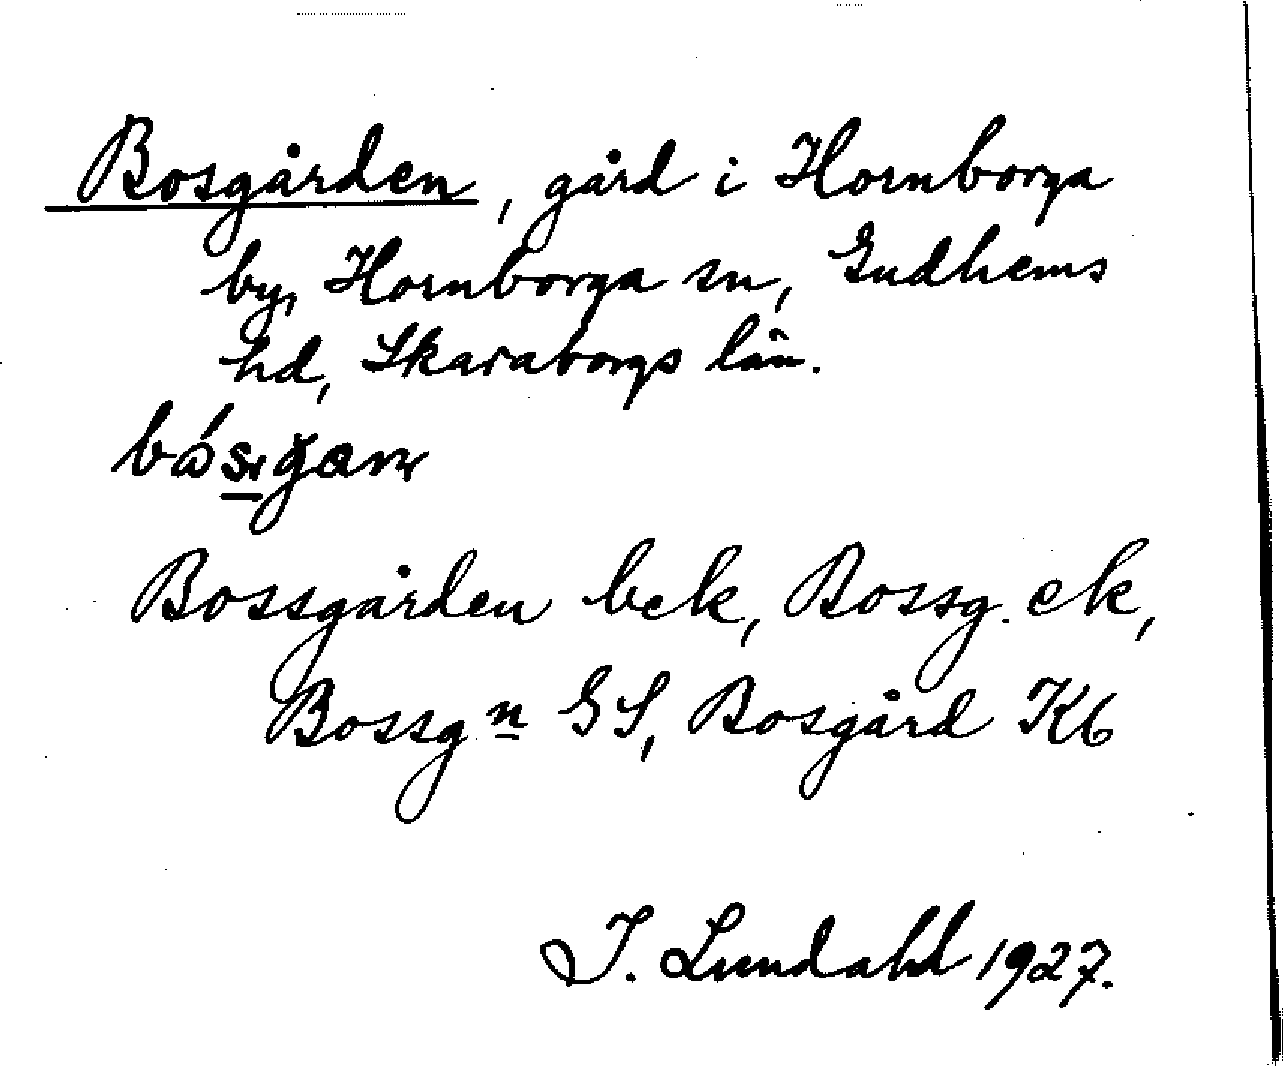 Bosgården, gård i Hornborga
by, Hornborga sn, Gudhems
hd, Skaraborgs län.
Bossgården bek, Bossg. ek,
Bossgn GS, Bosgård Kb
I. Lundahl 1927.